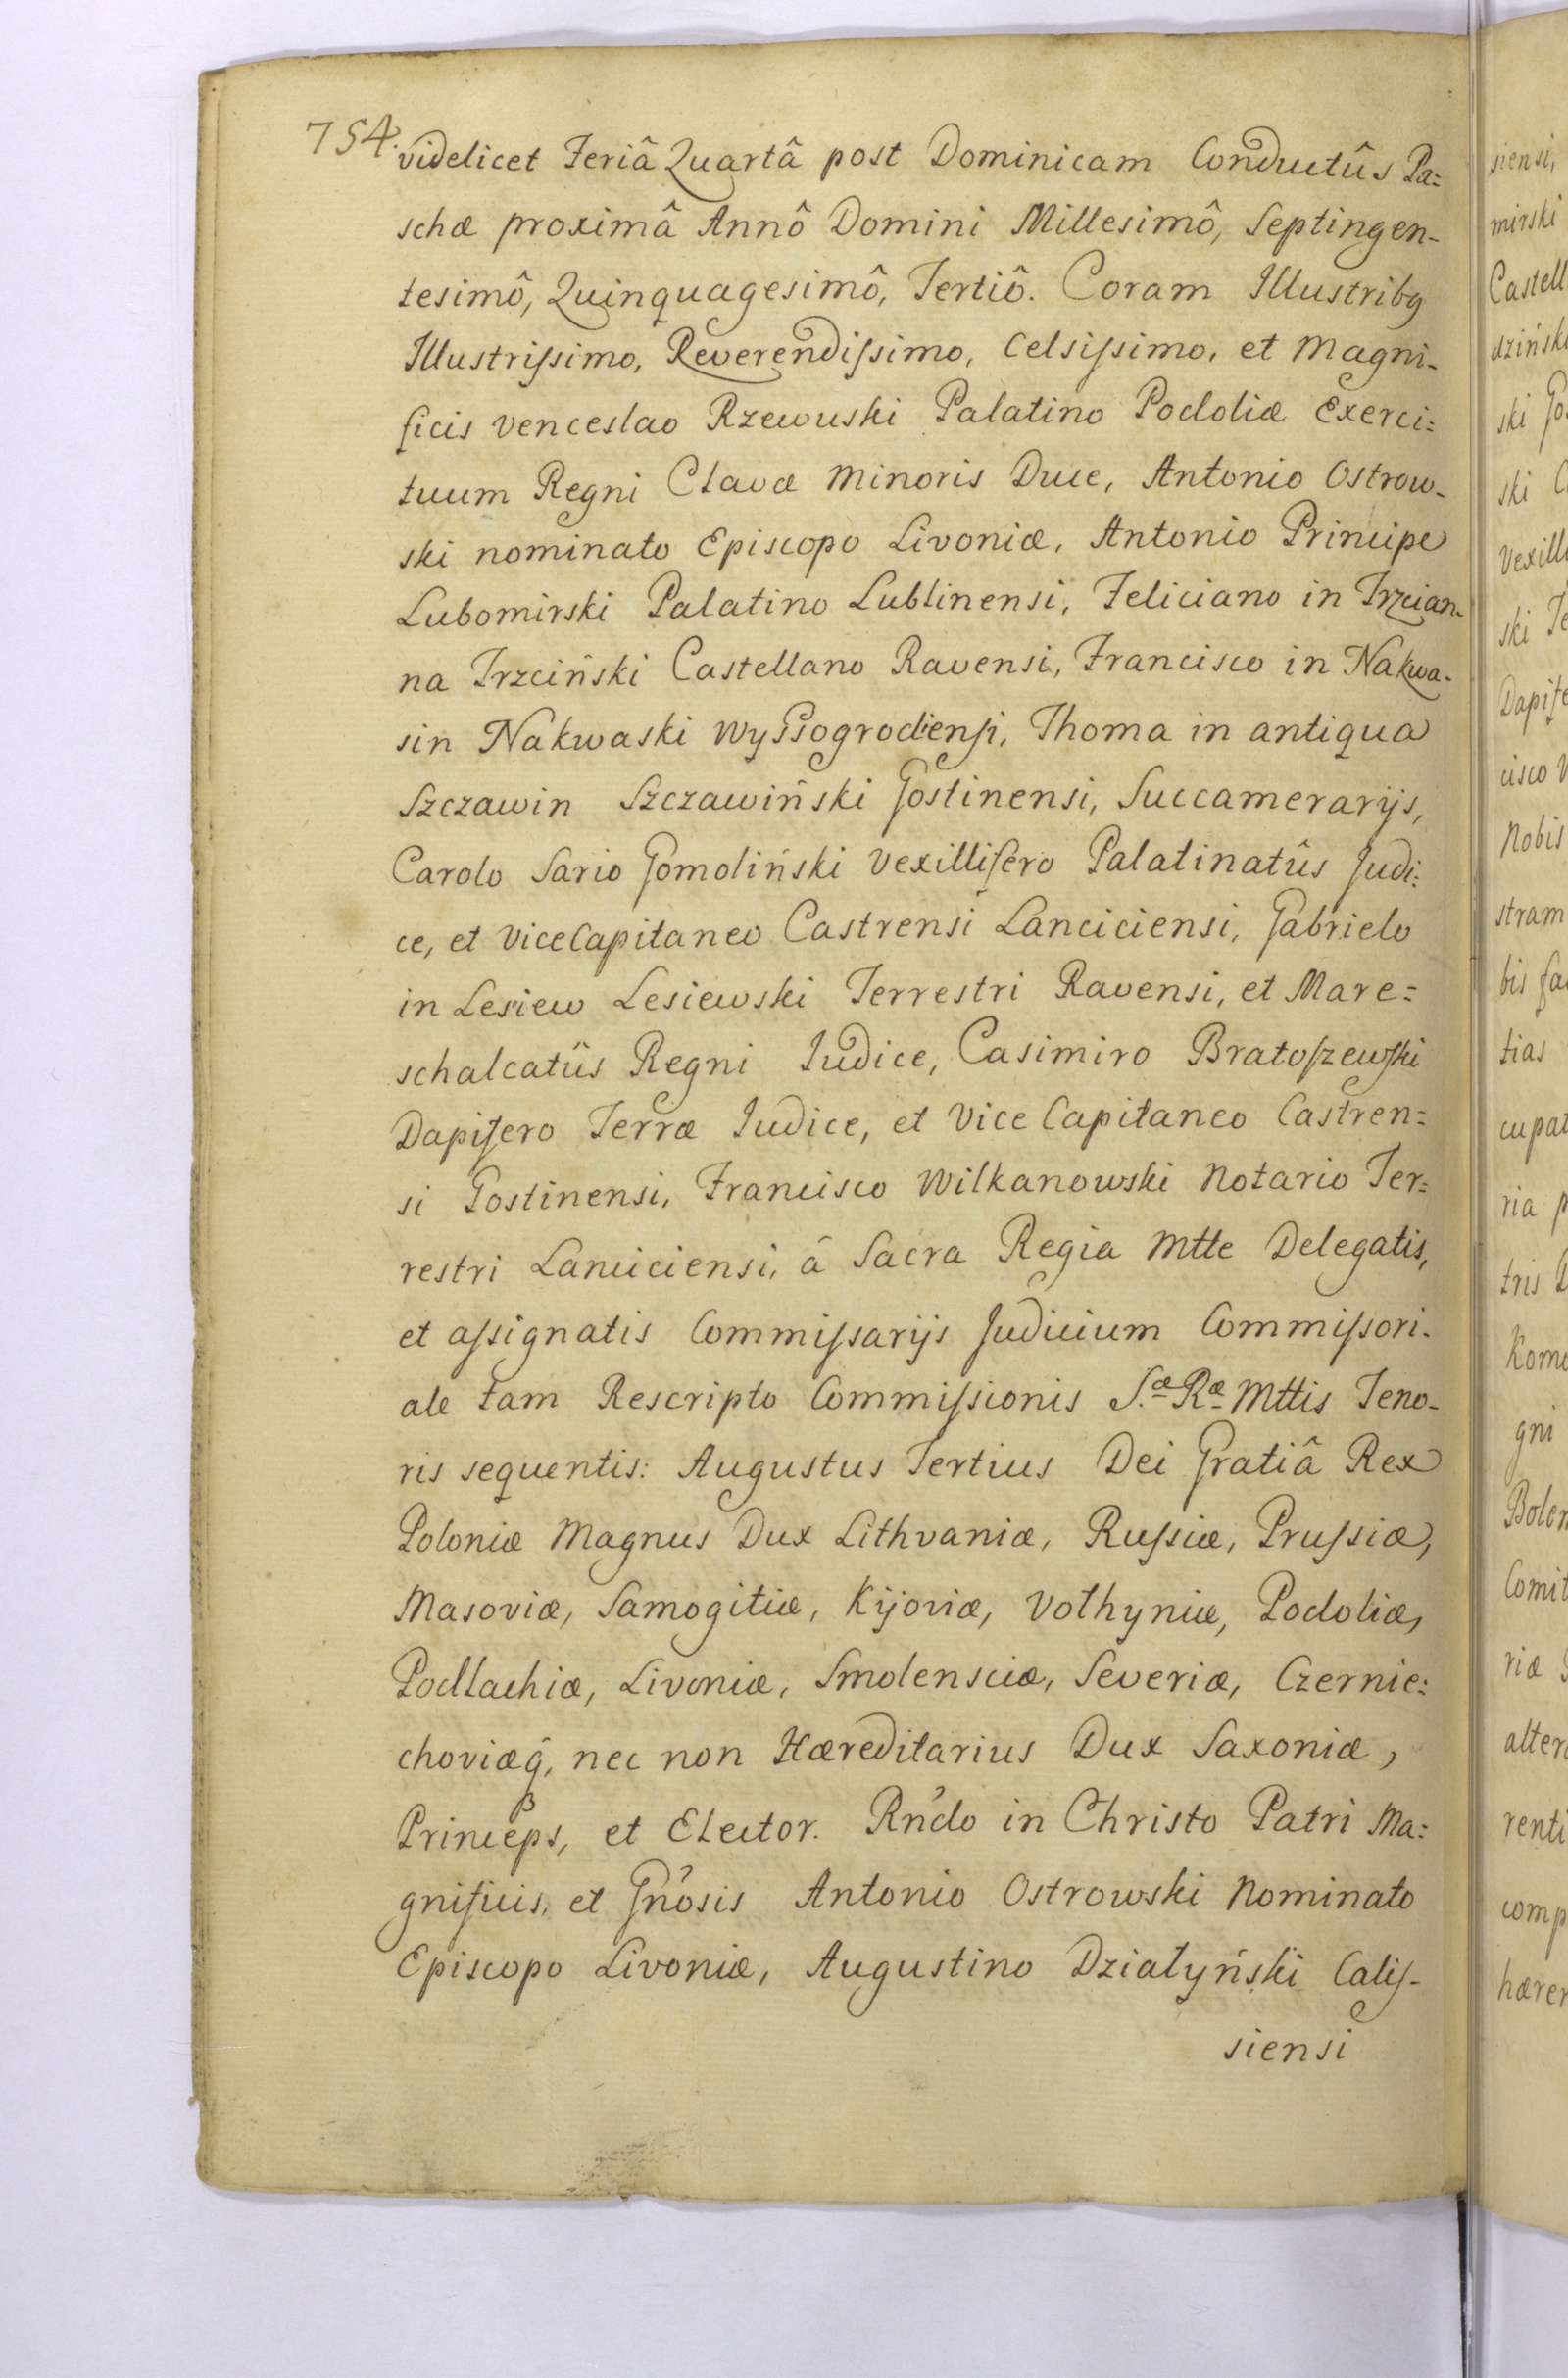 754.
videlicet Feriâ Quartâ post Dominicam Conductûs Pa=
schæ proximâ Annô Domini Millesimô, Septingen-
tesimô, Quinquagesimô, Tertiô. Coram Illustribq
Illustriſsimo, Reverendiſsimo, Celsiſsimo, et Magni-
ficis Venceslao Rzewuski Palatino Podoliæ Exerci=
tuum Regni Clavæ Minoris Duce, Antonio Ostrow-
ski nominato Episcopo Livoniæ, Antonio Principe
Lubomirski Palatino Lublinensi, Feliciano in Trzcian-
na Trzciński Castellano Ravensi, Francisco in Nakwa-
sin Nakwaski Wyſsogrodienſi, Thoma in antiqua
Szczawin Szczawiński Gostinensi, Succamerarijs,
Carolo Sario Gomoliński Vexillifero Palatinatûs Judi=
ce, et ViceCapitaneo Castrensi Lanciciensi, Gabrielo
in Lesiew Lesiewski Terrestri Ravensi, et Mare=
schalcatûs Regni Judice, Casimiro Bratoſzewſki
Dapifero Terræ Judice, et Vice Capitaneo Castren=
si Gostinensi, Francisco Wilkanowski Notario Ter=
restri Lanciciensi, â Sacra Regia Mtte Delegatis,
et aſsignatis Commiſsarijs Judicium Commiſsori-
ale tam Rescripto Commiſsionis S.æ Ræ Mttis Teno-
ris sequentis: Augustus Tertius Dei Gratiâ Rex
Poloniæ Magnus Dux Lithvaniæ, Ruſsiæ, Pruſsiæ,
Masoviæ, Samogitiæ, Kijoviæ, Volhyniæ, Podoliæ,
Podlachiæ, Livoniæ, Smolensciæ, Severiæ, Czernie=
choviæq̂, nec non Hæreditarius Dux Saxoniæ,
Princeps, et Elector. Rńdo in Christo Patri Ma=
gnificis, et Gńosis Antonio Ostrowski Nominato
Episcopo Livoniæ, Augustino Działyński Caliſ-
siensi